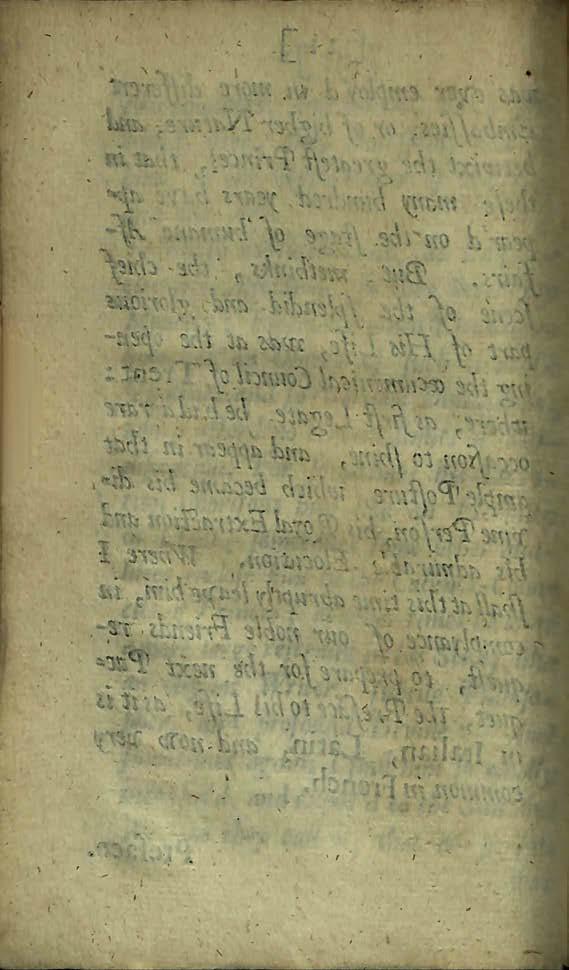 was ever employ'd in more different
Embassies, or of higher Nature, and
betwixt the greatest Princes, that in
these many hundred years have ap-
pear'd on the stage of humane Af-
fairs. But, methinks, the chief
scene of the splendid and glorious
part of His Life, was at the open-
ing the œcumenical Council of Trent:
where, as first Legate, he had a rare
occasion to shine, and appear in that
ample Posture, which became his di-
vine Person, his Royal Extraction and
his admirable Elocution. Where I
shall at this time abruptly leave him, in
complyance of our noble Friends re-
quest, to prepare for the next Pac-
quet, the Preface to his Life, as it is
in Italian, Latin, and now very
common in French.
Preface.